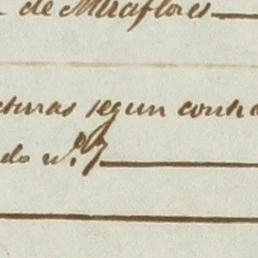 de Miraflores
cturas segun contra
do nº 7